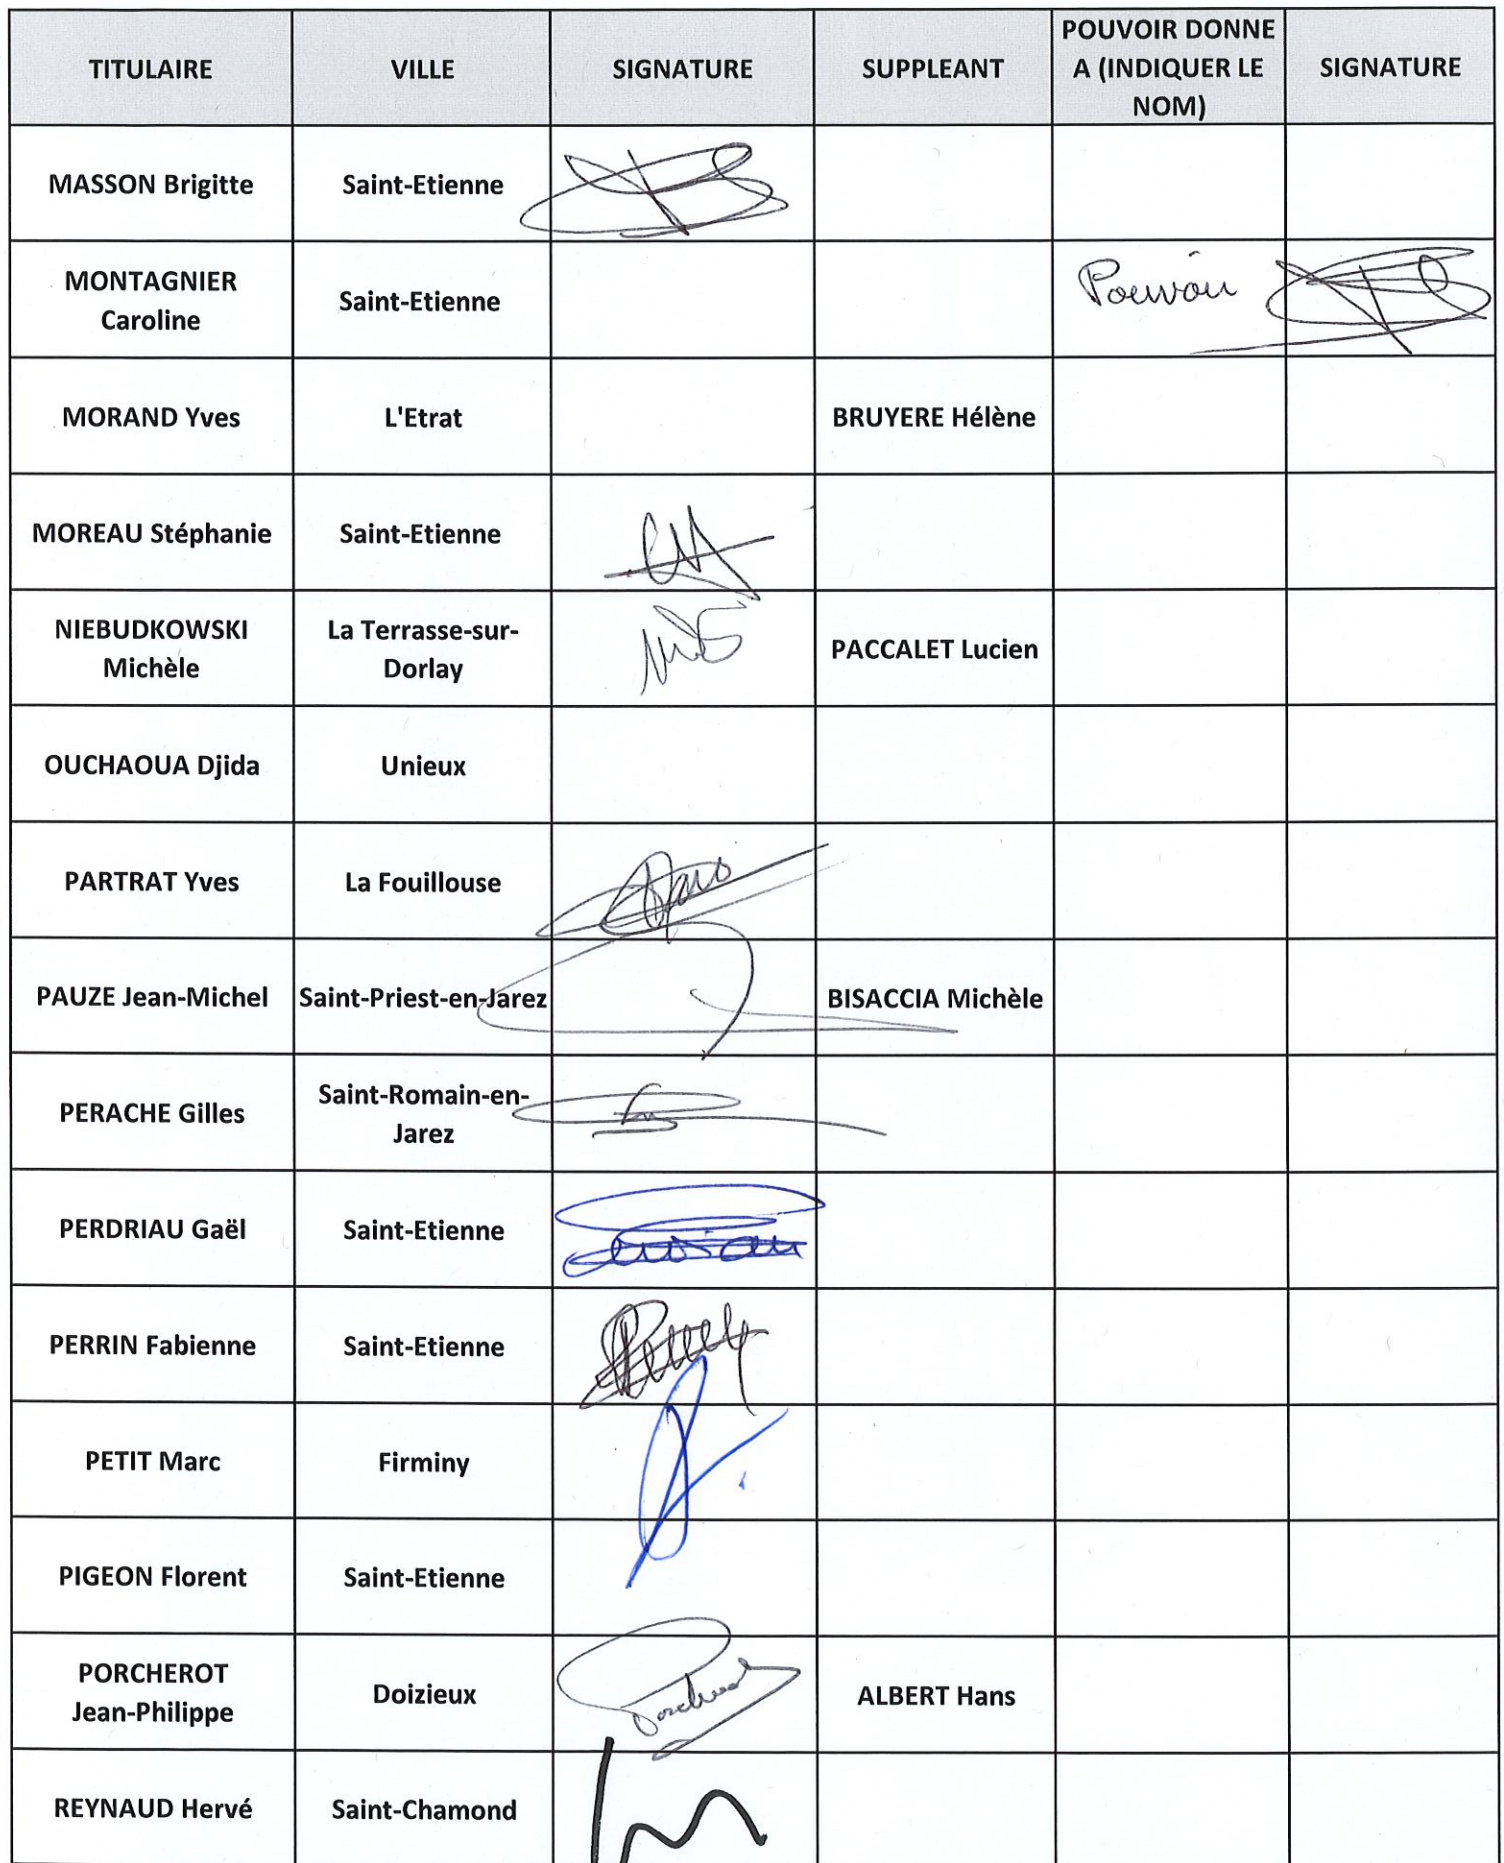 TITULAIRE VILLE SIGNATURE SUPPLEANT POUVOIR DONNE A (INDIQUER LE NOM) SIGNATURE
MASSON Brigitte Saint-Etienne
MONTAGNIER Caroline Saint-Etienne Pouvoir
MORAND Yves L'Etrat BRUYERE Hélène
MOREAU Stéphanie Saint-Etienne
NIEBUDKOWSKI Michèle La Terrasse-sur-Dorlay PACCALET Lucien
OUCHAOUA Djida Unieux
PARTRAT Yves La Fouillouse
PAUZE Jean-Michel Saint-Priest-en-Jarez BISACCIA Michèle
PERACHE Gilles Saint-Romain-en-Jarez
PERDRIAU Gaël Saint-Etienne
PERRIN Fabienne Saint-Etienne
PETIT Marc Firminy
PIGEON Florent Saint-Etienne
PORCHEROT Jean-Philippe Doizieux ALBERT Hans
REYNAUD Hervé Saint-Chamond